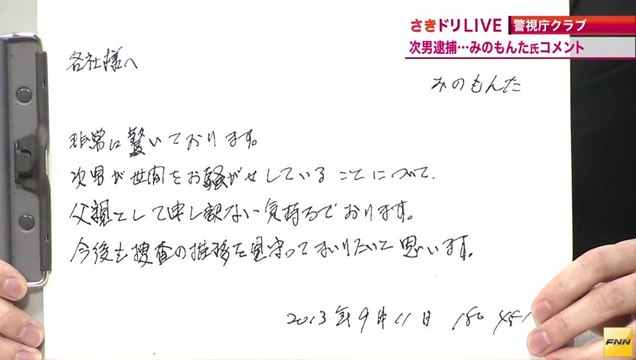 さきドリLIVE 警視庁クラブ
次男逮捕…みのもんた氏コメント
各社様へ
みのもんた
非常に驚いております。
次男が世間をお騒がせしていることについて、
父親として申し訳ない気持ちでおります。
今後も捜査の推移を見守ってまいりたいと思います。
2013年9月11日
FNN